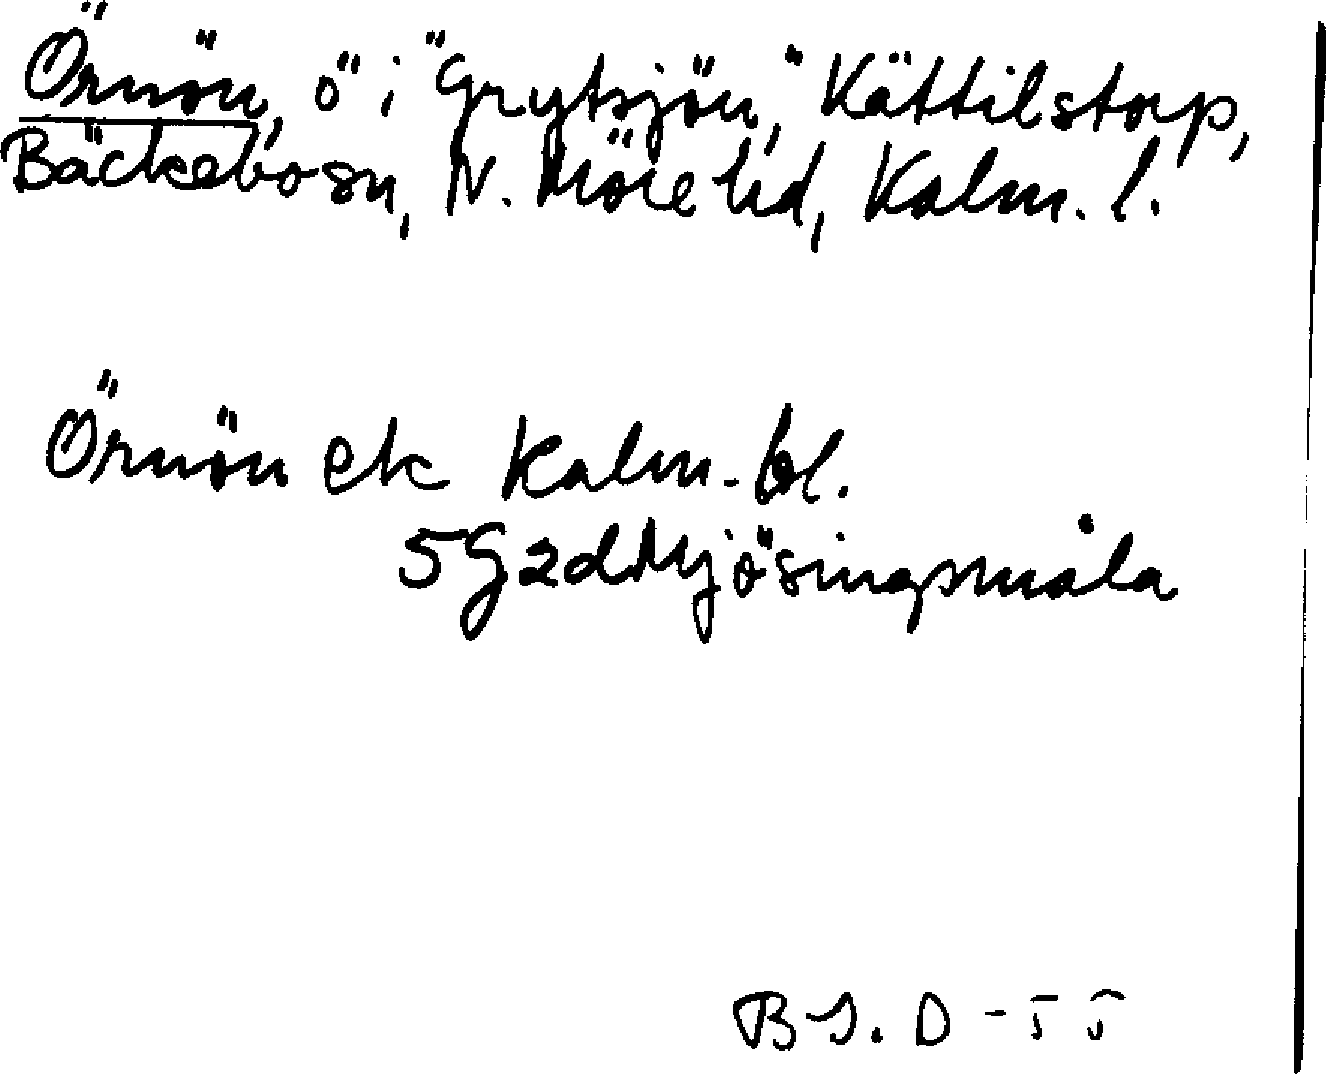 Örnön, ö i "Grytsjön," Kättilstorp,
Bäckebo sn, N. Möre hd, Kalm. l.
Örnön ek Kalm. bl.
5G2d Mjösingsmåla
B-S. D - 55